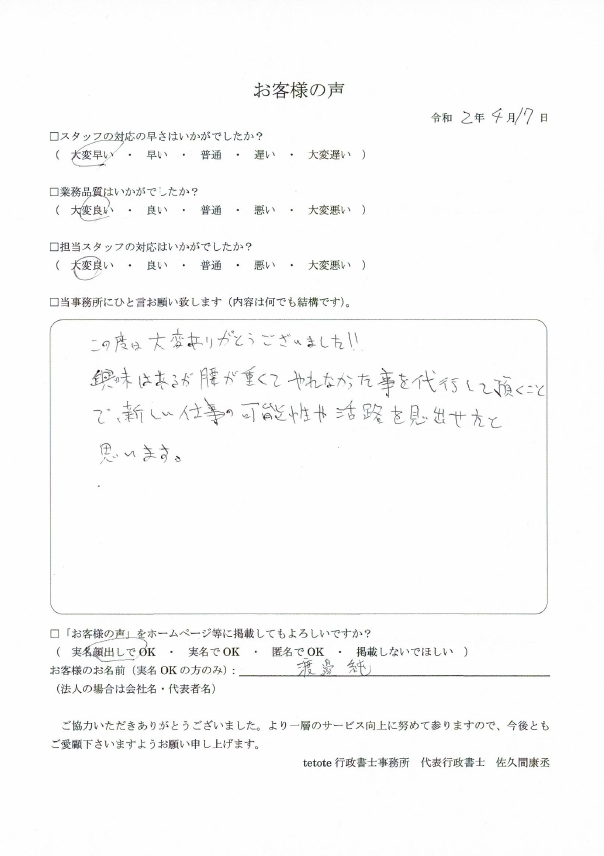 お客様の声
令和 2年 4月17日
□スタッフの対応の早さはいかがでしたか？
（ 大変早い ・ 早い ・ 普通 ・ 遅い ・ 大変遅い ）
□業務品質はいかがでしたか？
（ 大変良い ・ 良い ・ 普通 ・ 悪い ・ 大変悪い ）
□担当スタッフの対応はいかがでしたか？
（ 大変良い ・ 良い ・ 普通 ・ 悪い ・ 大変悪い ）
□当事務所にひと言お願い致します（内容は何でも結構です）。
この度は大変ありがとうございました!!
興味はあるが腰が重くてやれなかった事を代行して頂くこと
で、新しい仕事の可能性や活路を見出せたと
思います。
□「お客様の声」をホームページ等に掲載してもよろしいですか？
（ 実名顔出しで OK ・ 実名で OK ・ 匿名で OK ・ 掲載しないでほしい ）
お客様のお名前（実名 OK の方のみ）: 渡邉 純
（法人の場合は会社名・代表者名）
ご協力いただきありがとうございました。より一層のサービス向上に努めて参りますので、今後とも
ご愛顧下さいますようお願い申し上げます。
tetote 行政書士事務所 代表行政書士 佐久間康丞